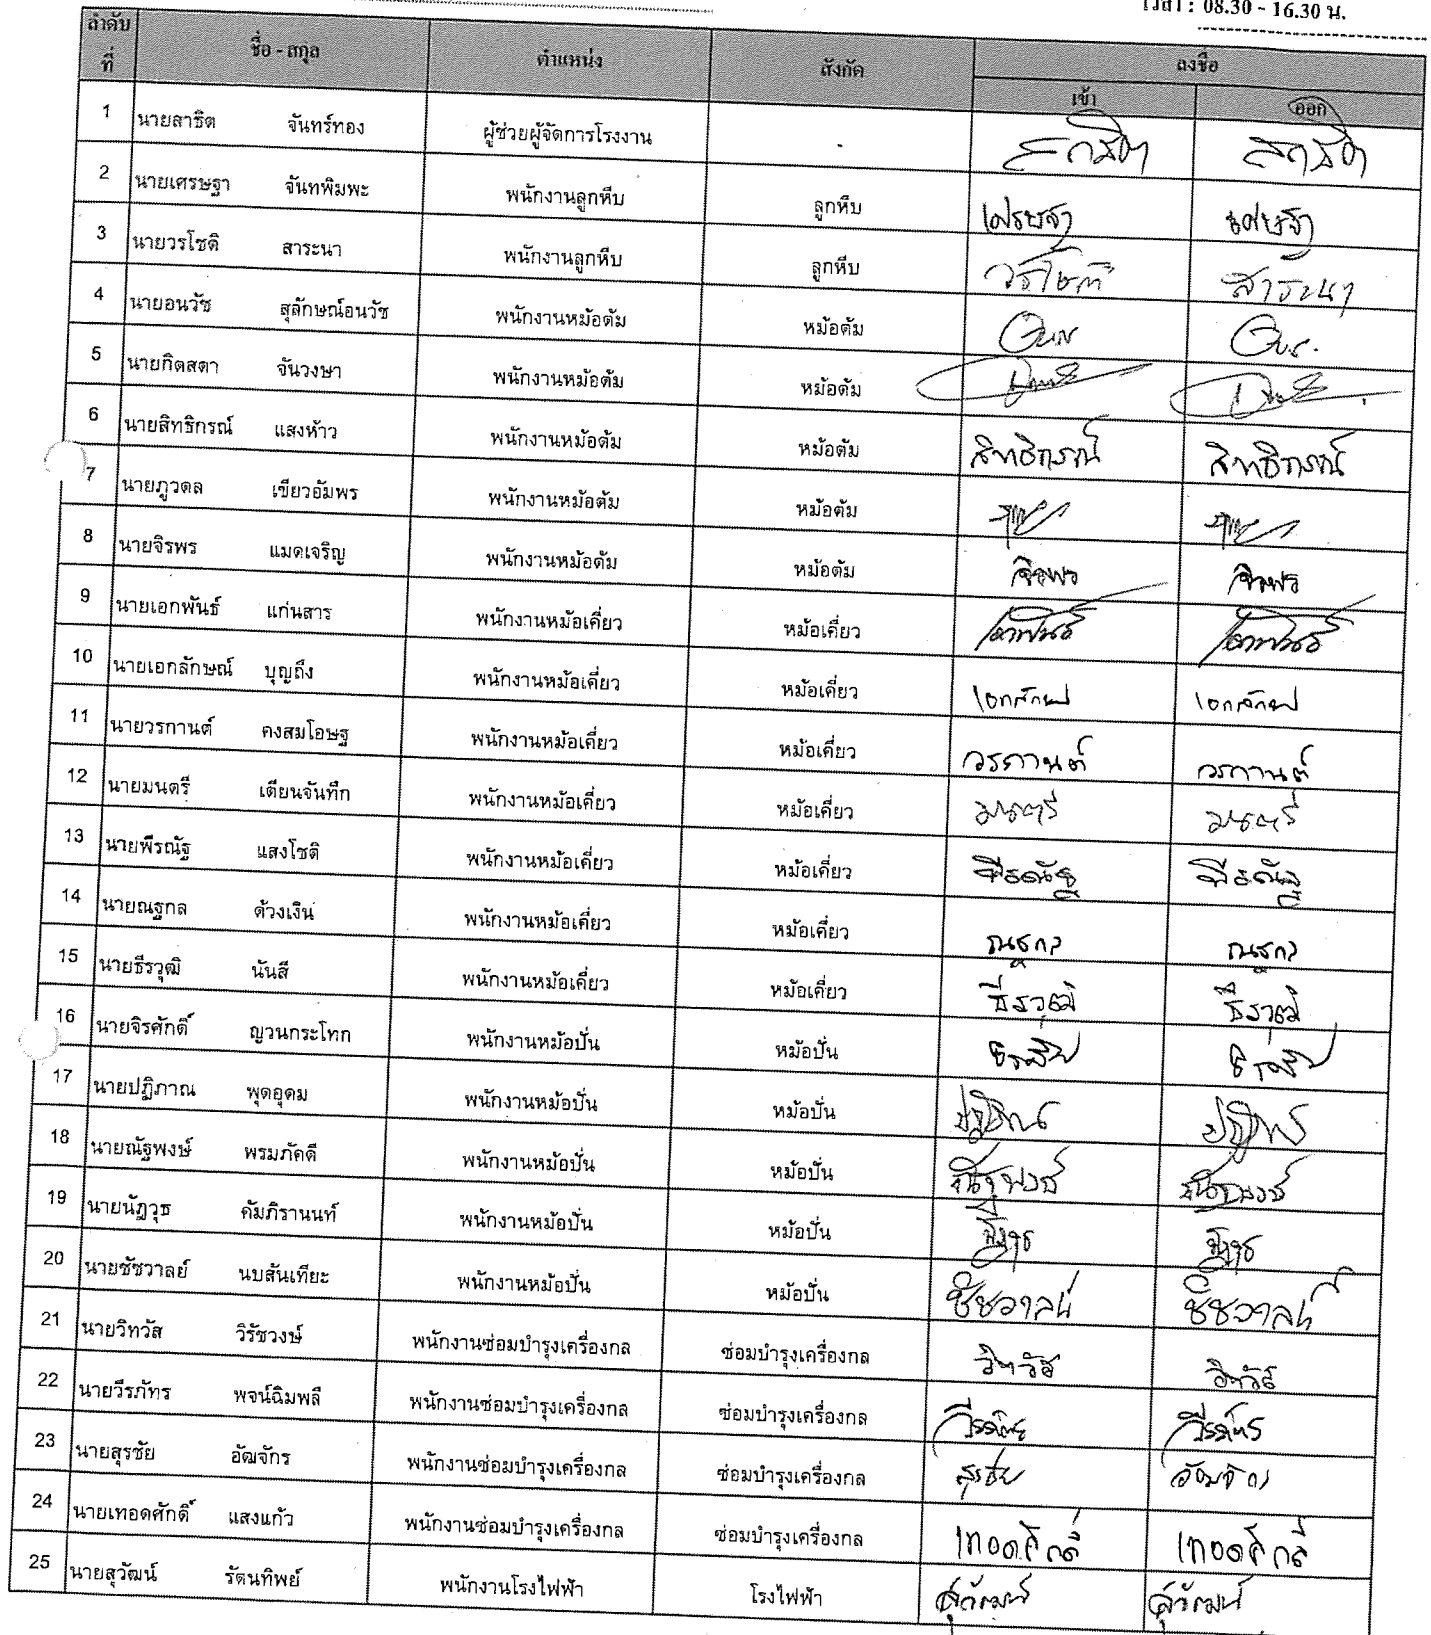 เวลา : 08.30 - 16.30 น.
ลำดับที่ ชื่อ - สกุล ตำแหน่ง สังกัด ลงชื่อ
เข้า ออก
1 นายสาธิต จันทร์ทอง ผู้ช่วยผู้จัดการโรงงาน -
2 นายเศรษฐา จันทพิมพะ พนักงานลูกหีบ ลูกหีบ เศรษฐา เศรษฐา
3 นายวรโชติ สาระนา พนักงานลูกหีบ ลูกหีบ วรโชติ สาระนา
4 นายอนวัช สุลักษณ์อนวัช พนักงานหม้อต้ม หม้อต้ม
5 นายกิตสดา จันวงษา พนักงานหม้อต้ม หม้อต้ม
6 นายสิทธิกรณ์ แสงห้าว พนักงานหม้อต้ม หม้อต้ม สิทธิกรณ์ สิทธิกรณ์
7 นายภูวดล เขียวอัมพร พนักงานหม้อต้ม หม้อต้ม
8 นายจิรพร แมดเจริญ พนักงานหม้อต้ม หม้อต้ม จิรพร จิรพร
9 นายเอกพันธ์ แก่นสาร พนักงานหม้อเคี่ยว หม้อเคี่ยว เอกพันธ์ เอกพันธ์
10 นายเอกลักษณ์ บุญถึง พนักงานหม้อเคี่ยว หม้อเคี่ยว
11 นายวรกานต์ คงสมโอษฐ พนักงานหม้อเคี่ยว หม้อเคี่ยว วรกานต์ วรกานต์
12 นายมนตรี เตียนจันทึก พนักงานหม้อเคี่ยว หม้อเคี่ยว มนตรี มนตรี
13 นายพีรณัฐ แสงโชติ พนักงานหม้อเคี่ยว หม้อเคี่ยว พีรณัฐ พีรณัฐ
14 นายณฐกล ด้วงเงิน พนักงานหม้อเคี่ยว หม้อเคี่ยว ณฐกล ณฐกล
15 นายธีรวุฒิ นันสี พนักงานหม้อเคี่ยว หม้อเคี่ยว ธีรวุฒิ ธีรวุฒิ
16 นายจิรศักดิ์ ญวนกระโทก พนักงานหม้อปั่น หม้อปั่น
17 นายปฏิภาณ พุดอุดม พนักงานหม้อปั่น หม้อปั่น
18 นายณัฐพงษ์ พรมภักดี พนักงานหม้อปั่น หม้อปั่น
19 นายนัฎวุธ คัมภิรานนท์ พนักงานหม้อปั่น หม้อปั่น
20 นายชัชวาลย์ นบสันเทียะ พนักงานหม้อปั่น หม้อปั่น ชัชวาลย์ ชัชวาลย์
21 นายวิทวัส วิรัชวงษ์ พนักงานซ่อมบำรุงเครื่องกล ซ่อมบำรุงเครื่องกล วิทวัส วิทวัส
22 นายวีรภัทร พจน์ฉิมพลี พนักงานซ่อมบำรุงเครื่องกล ซ่อมบำรุงเครื่องกล วีรภัทร วีรภัทร
23 นายสุรชัย อัฒจักร พนักงานซ่อมบำรุงเครื่องกล ซ่อมบำรุงเครื่องกล สุรชัย อัฒจักร
24 นายเทอดศักดิ์ แสงแก้ว พนักงานซ่อมบำรุงเครื่องกล ซ่อมบำรุงเครื่องกล เทอดศักดิ์ เทอดศักดิ์
25 นายสุวัฒน์ รัตนทิพย์ พนักงานโรงไฟฟ้า โรงไฟฟ้า สุวัฒน์ สุวัฒน์